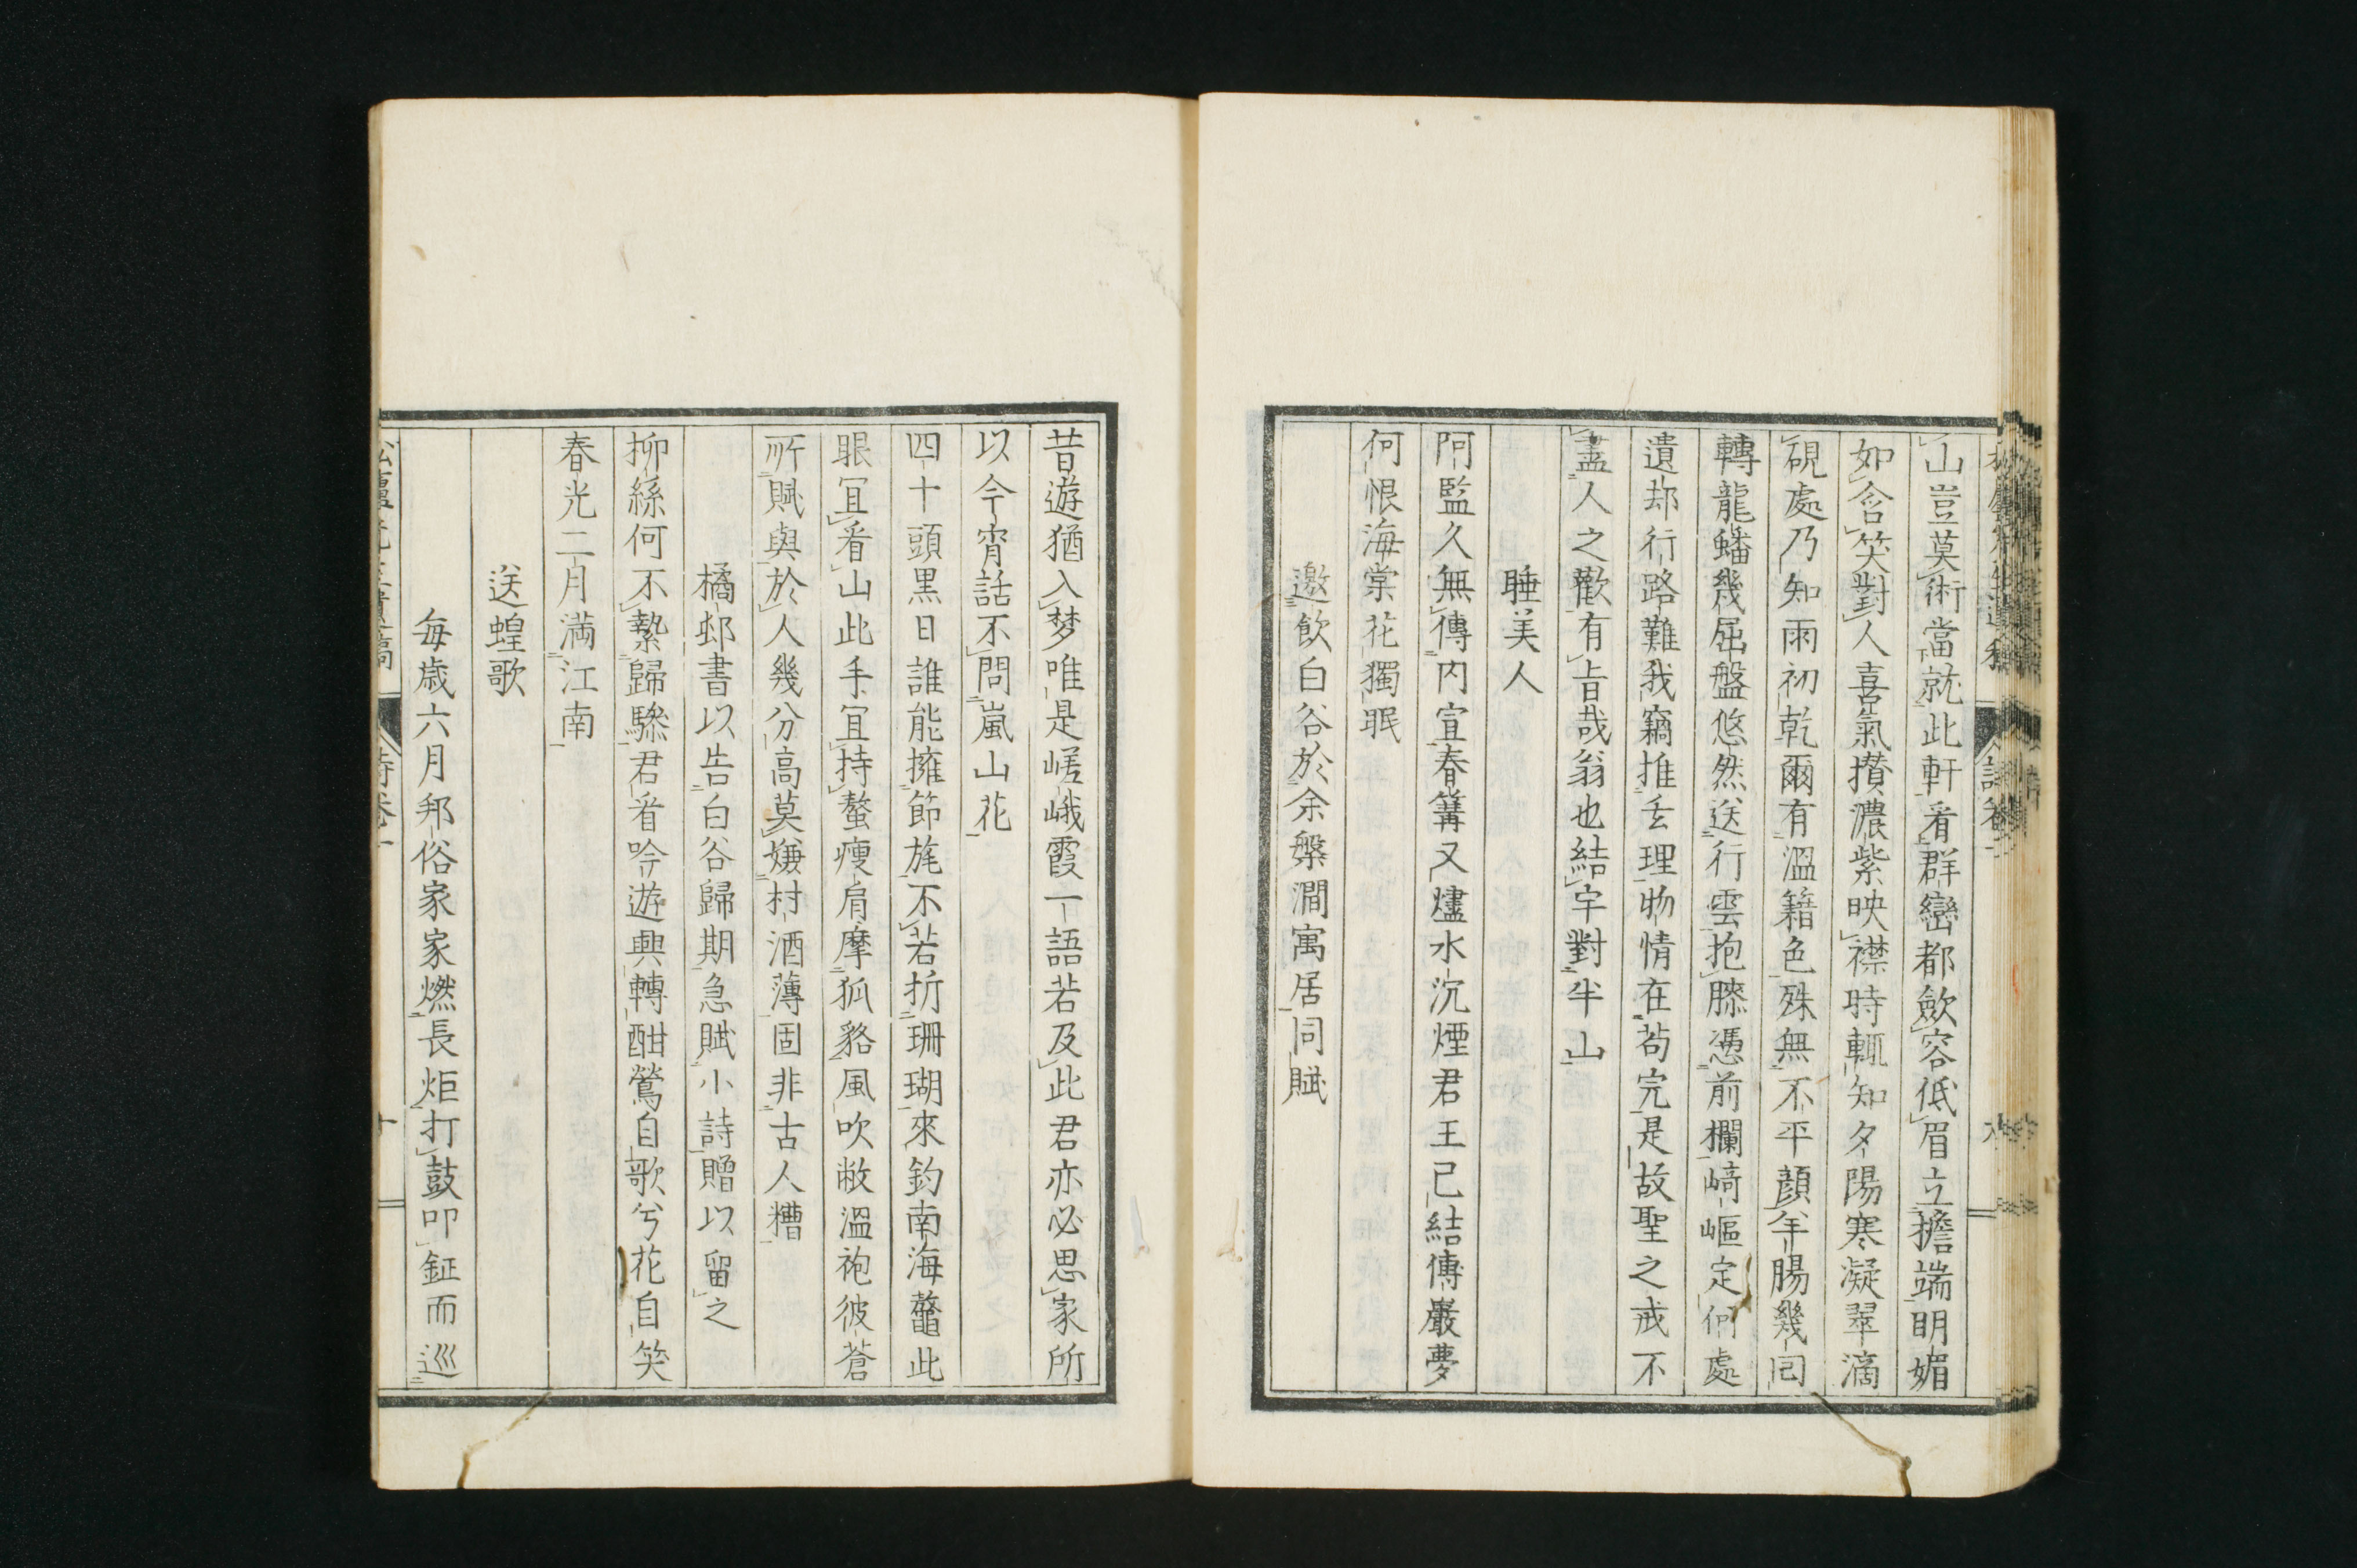 山豈莫術當就此軒看群巒都斂容低眉立擔端明媚
如含笑對人喜氣攢濃紫映襟時輒知夕陽寒凝翠滴
硯處乃知雨初乾爾有溫籍色殊無不平顔羊腸幾回
轉龍蟠幾屈盤悠然送行雲抱膝憑前欄崎嶇定何處
遺却行路難我竊推玄理物情在苟完是故聖之戒不
盡人之歡有旨哉翁也結宇對半山
睡美人
阿監久無傳内宣春篝又燼水沉煙君王已結傅巖夢
何恨海棠花獨眠
邀飲白谷於余槃澗寓居同賦
昔遊猶入梦唯是嵯峨霞一語若及此君亦必思家所
以今宵話不問嵐山花
四十頭黒日誰能擁節旄不若折珊瑚來釣南海鼇此
眼宜看山此手宜持螯痩肩摩狐貉風吹敝溫袍彼蒼
所賦與於人幾分高莫嫌村酒薄固非古人糟
橘邨書以告白谷歸期急賦小詩贈以留之
柳絲何不縶歸驂君看吟遊興轉酣鶯自歌兮花自笑
春光二月満江南
送蝗歌
毎歳六月邦俗家家燃長炬打鼓叩鉦而巡